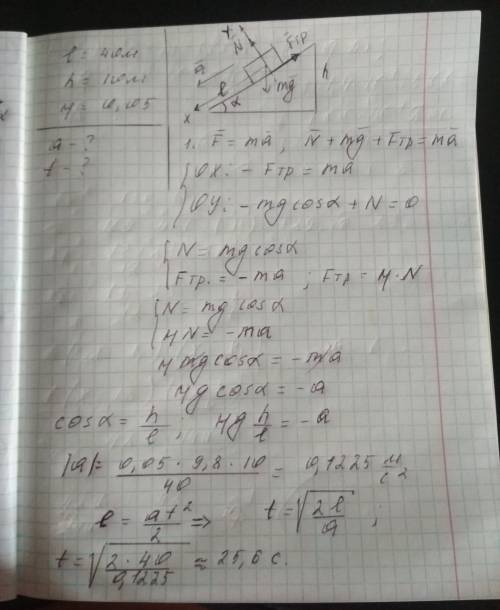 l = 40м
h = 10м
μ = 0,05
a - ?
t - ?
y N Fтр
a h
l
x α mg
1. F = ma ; N + mg + Fтр = ma
OX: - Fтр = ma
OY: - mg cosα + N = 0
N = mg cosα
Fтр. = - ma ; Fтр = μ · N
N = mg cosα
μN = - ma
μ mg cosα = - ma
μg cosα = - a
cosα = h/l ; μg h/l = - a
|a| = 0,05 · 9,8 · 10 / 40 = 0,1225 м/с2
l = at²/2 => t = √(2l/a) ;
t = √(2 · 40 / 0,1225) ≈ 25,6 с.